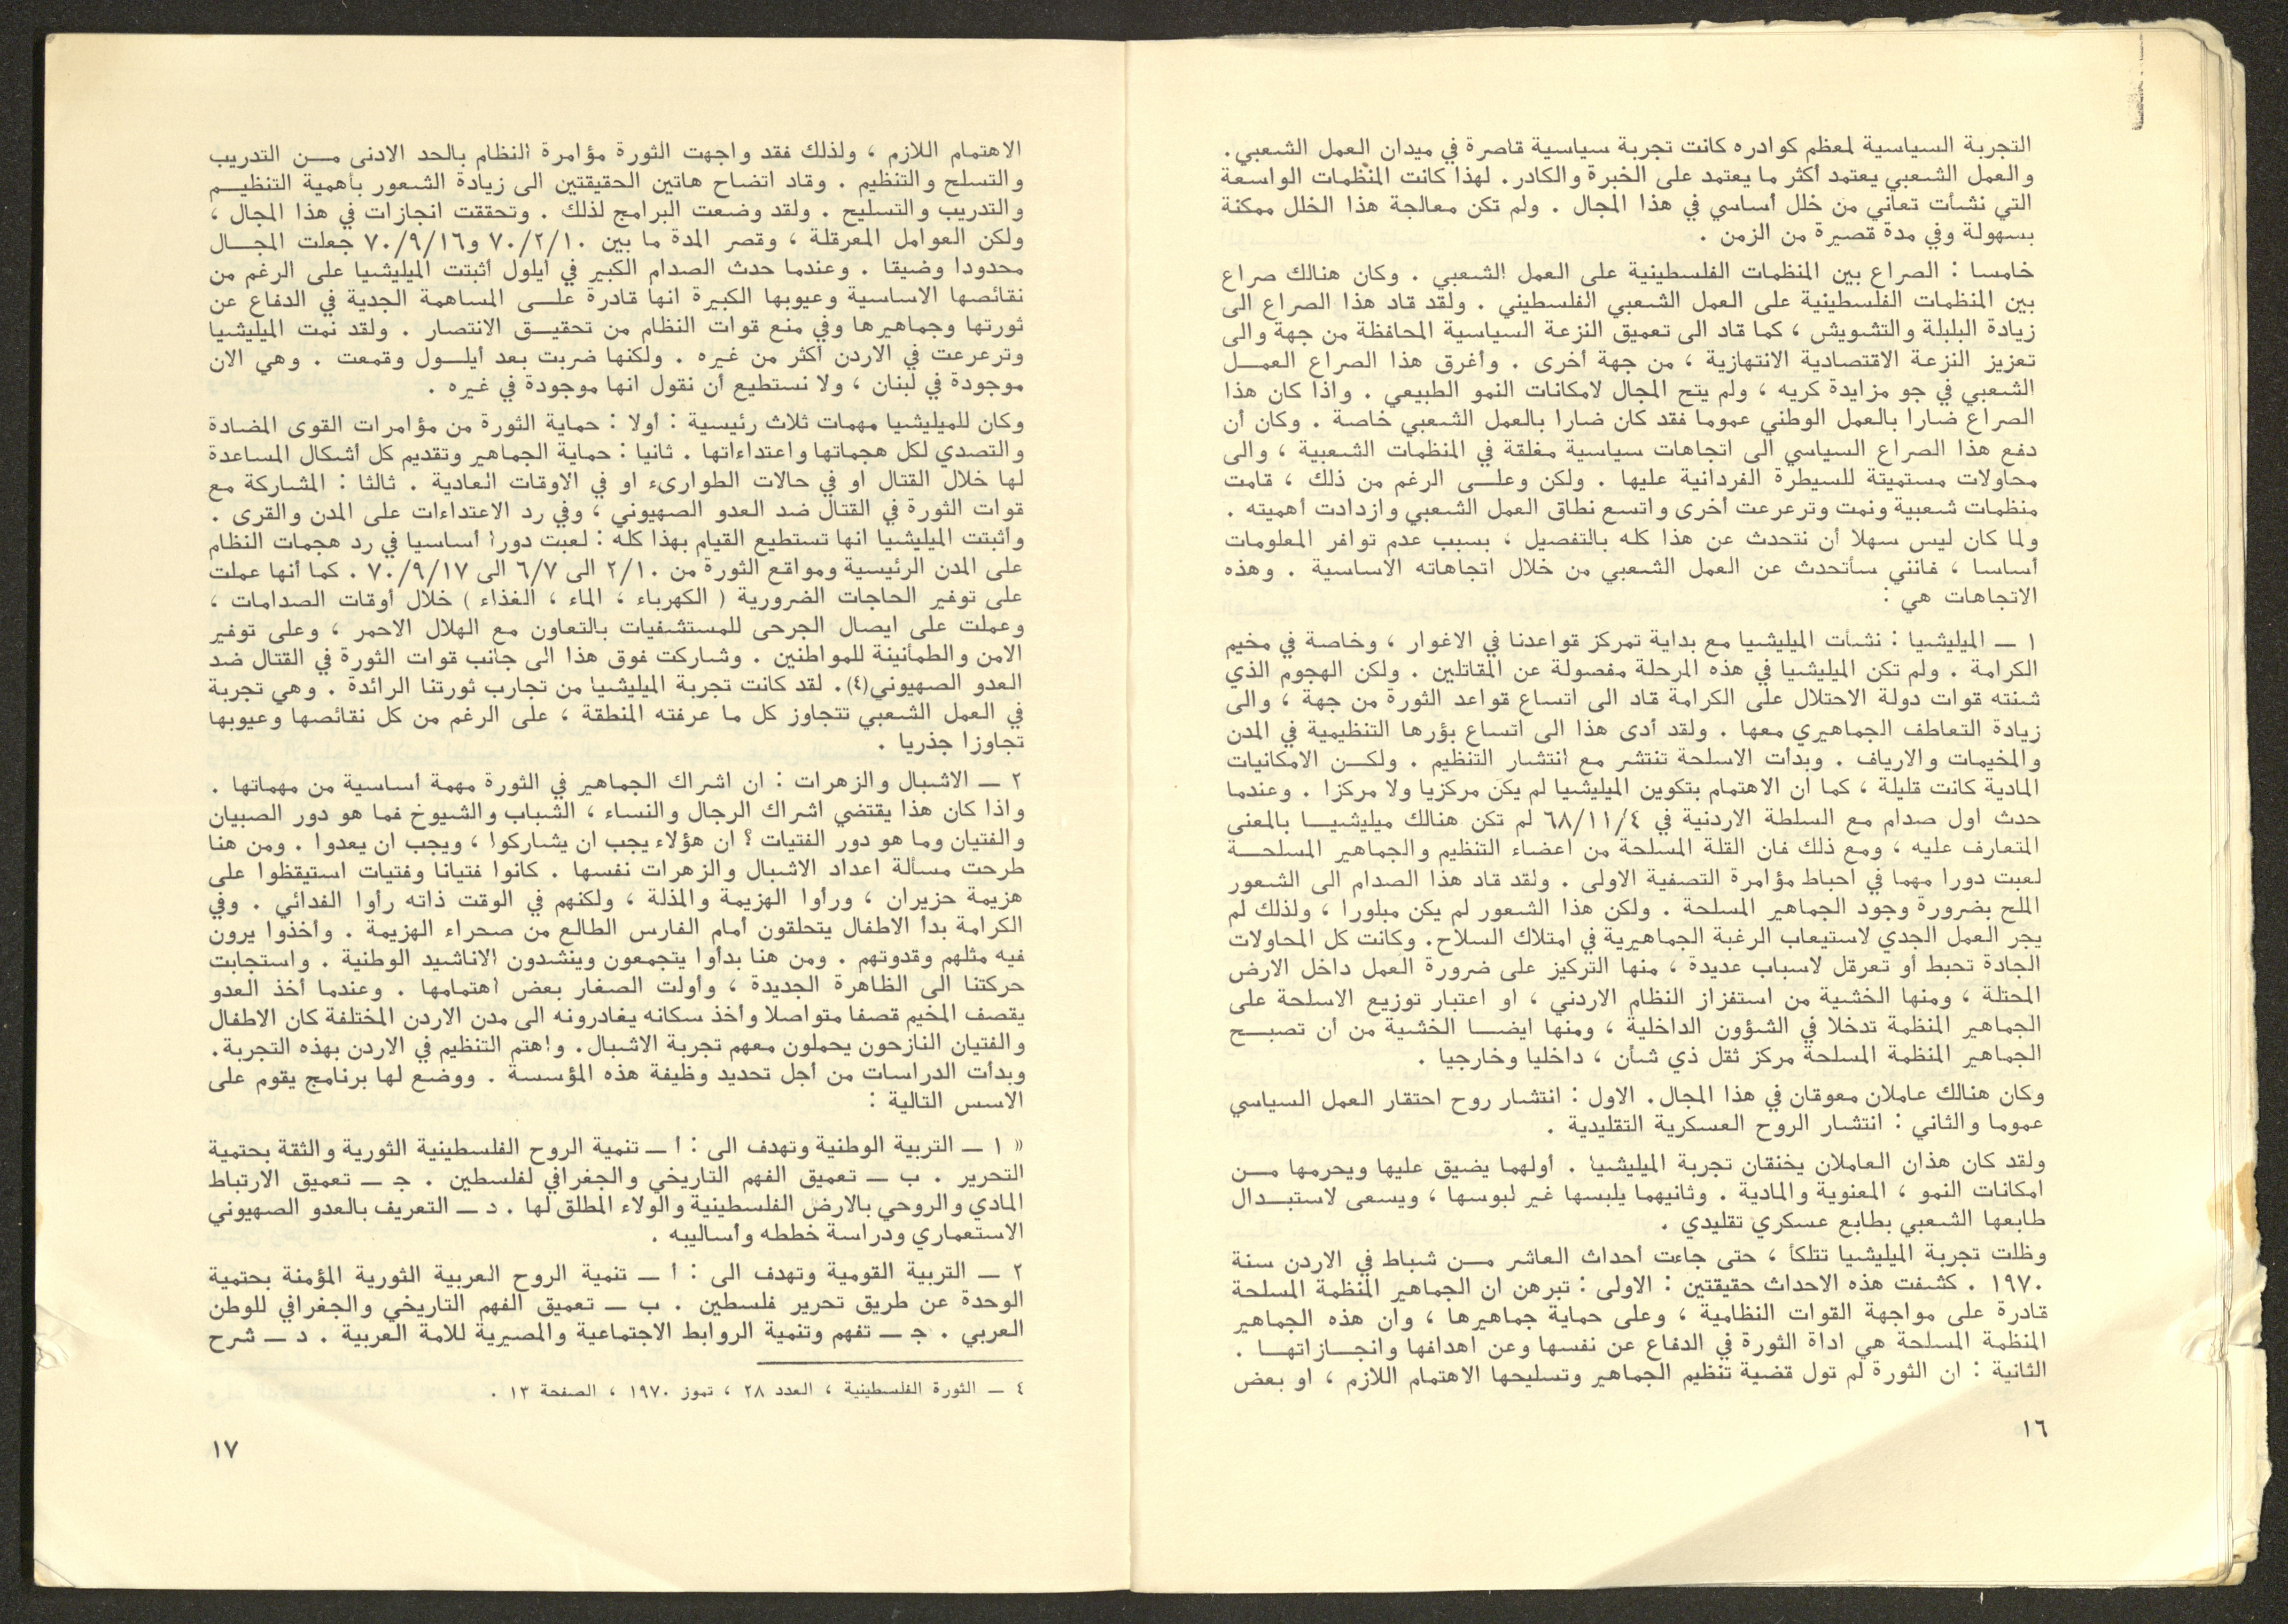 التجربة السياسية لمعظم كوادره كانت تجربة سياسية قاصرة في ميدان العمل الشعبي.
والعمل الشعبي يعتمد أكثر ما يعتمد على الخبرة والكادر. لهذا كانت المنظمات الواسعة
التي نشأت تعاني من خلل أساسي في هذا المجال . ولم تكن معالجة هذا الخلل ممكنة
بسهولة وفي مدة قصيرة من الزمن .
خامسا : الصراع بين المنظمات الفلسطينية على العمل الشعبي . وكان هنالك صراع
بين المنظمات الفلسطينية على العمل الشعبي الفلسطيني . ولقد قاد هذا الصراع الى
زيادة البلبلة والتشويش ، كما قاد الى تعميق النزعة السياسية المحافظة من جهة والى
تعزيز النزعة الاقتصادية الانتهازية ، من جهة أخرى . وأغرق هذا الصراع العمــل
الشعبي في جو مزايدة كريه ، ولم يتح المجال لامكانات النمو الطبيعي . واذا كان هذا
الصراع ضارا بالعمل الوطني عموما فقد كان ضارا بالعمل الشعبي خاصة . وكان أن
دفع هذا الصراع السياسي الى اتجاهات سياسية مغلقة في المنظمات الشعبية ، والى
محاولات مستميتة للسيطرة الفردانية عليها . ولكن وعلــى الرغم من ذلك ، قامت
منظمات شعبية ونمت وترعرعت أخرى واتسع نطاق العمل الشعبي وازدادت أهميته .
ولما كان ليس سهلا أن نتحدث عن هذا كله بالتفصيل ، بسبب عدم توافر المعلومات
أساسا ، فانني سأتحدث عن العمل الشعبي من خلال اتجاهاته الاساسية . وهذه
الاتجاهات هي :
١ ــ الميليشيا : نشأت الميليشيا مع بداية تمركز قواعدنا في الاغوار ، وخاصة في مخيم
الكرامة . ولم تكن الميليشيا في هذه المرحلة مفصولة عن المقاتلين . ولكن الهجوم الذي
شنته قوات دولة الاحتلال على الكرامة قاد الى اتساع قواعد الثورة من جهة ، والى
زيادة التعاطف الجماهيري معها . ولقد أدى هذا الى اتساع بؤرها التنظيمية في المدن
والمخيمات والارياف . وبدأت الاسلحة تنتشر مع انتشار التنظيم . ولكــن الامكانيات
المادية كانت قليلة ، كما ان الاهتمام بتكوين الميليشيا لم يكن مركزيا ولا مركزا . وعندما
حدث اول صدام مع السلطة الاردنية في ٦٨/١١/٤ لم تكن هنالك ميليشيــا بالمعنى
المتعارف عليه ، ومع ذلك فان القلة المسلحة من اعضاء التنظيم والجماهير المسلحــة
لعبت دورا مهما في احباط مؤامرة التصفية الاولى . ولقد قاد هذا الصدام الى الشعور
الملح بضرورة وجود الجماهير المسلحة . ولكن هذا الشعور لم يكن مبلورا ، ولذلك لم
يجر العمل الجدي لاستيعاب الرغبة الجماهيرية في امتلاك السلاح. وكانت كل المحاولات
الجادة تحبط أو تعرقل لاسباب عديدة ، منها التركيز على ضرورة العمل داخل الارض
المحتلة ، ومنها الخشية من استفزاز النظام الاردني ، او اعتبار توزيع الاسلحة على
الجماهير المنظمة تدخلا في الشؤون الداخلية ، ومنها ايضــا الخشية من أن تصبــح
الجماهير المنظمة المسلحة مركز ثقل ذي شأن ، داخليا وخارجيا .
وكان هنالك عاملان معوقان في هذا المجال. الاول : انتشار روح احتقار العمل السياسي
عموما والثاني : انتشار الروح العسكرية التقليدية .
ولقد كان هذان العاملان يخنقان تجربة الميليشيا . أولهما يضيق عليها ويحرمها مــن
امكانات النمو ، المعنوية والمادية . وثانيهما يلبسها غير لبوسها ، ويسعى لاستبــدال
طابعها الشعبي بطابع عسكري تقليدي .
وظلت تجربة الميليشيا تتلكأ ، حتى جاءت أحداث العاشر مــن شباط في الاردن سنة
١٩٧٠ . كشفت هذه الاحداث حقيقتين : الاولى : تبرهن ان الجماهير المنظمة المسلحة
قادرة على مواجهة القوات النظامية ، وعلى حماية جماهيرها ، وان هذه الجماهير
المنظمة المسلحة هي اداة الثورة في الدفاع عن نفسها وعن اهدافها وانجــازاتهــا .
الثانية : ان الثورة لم تول قضية تنظيم الجماهير وتسليحها الاهتمام اللازم ، او بعض
١٦
الاهتمام اللازم ، ولذلك فقد واجهت الثورة مؤامرة النظام بالحد الادنى مــن التدريب
والتسلح والتنظيم . وقاد اتضاح هاتين الحقيقتين الى زيادة الشعور بأهمية التنظيــم
والتدريب والتسليح . ولقد وضعت البرامج لذلك . وتحققت انجازات في هذا المجال ،
ولكن العوامل المعرقلة ، وقصر المدة ما بين ٧٠/٢/١٠ و٧٠/٩/١٦ جعلت المجــال
محدودا وضيقا . وعندما حدث الصدام الكبير في أيلول أثبتت الميليشيا على الرغم من
نقائصها الاساسية وعيوبها الكبيرة انها قادرة علــى المساهمة الجدية في الدفاع عن
ثورتها وجماهيرها وفي منع قوات النظام من تحقيــق الانتصار . ولقد نمت الميليشيا
وترعرعت في الاردن أكثر من غيره . ولكنها ضربت بعد أيلــول وقمعت . وهي الان
موجودة في لبنان ، ولا نستطيع أن نقول انها موجودة في غيره .
وكان للميليشيا مهمات ثلاث رئيسية : أولا : حماية الثورة من مؤامرات القوى المضادة
والتصدي لكل هجماتها واعتداءاتها . ثانيا : حماية الجماهير وتقديم كل أشكال المساعدة
لها خلال القتال او في حالات الطوارىء او في الاوقات العادية . ثالثا : المشاركة مع
قوات الثورة في القتال ضد العدو الصهيوني ، وفي رد الاعتداءات على المدن والقرى .
وأثبتت الميليشيا انها تستطيع القيام بهذا كله : لعبت دورا أساسيا في رد هجمات النظام
على المدن الرئيسية ومواقع الثورة من ٢/١٠ الى ٦/٧ الى ٧٠/٩/١٧ . كما أنها عملت
على توفير الحاجات الضرورية ( الكهرباء ، الماء ، الغذاء ) خلال أوقات الصدامات ،
وعملت على ايصال الجرحى للمستشفيات بالتعاون مع الهلال الاحمر ، وعلى توفير
الامن والطمأنينة للمواطنين . وشاركت فوق هذا الى جانب قوات الثورة في القتال ضد
العدو الصهيوني(٤). لقد كانت تجربة الميليشيا من تجارب ثورتنا الرائدة . وهي تجربة
في العمل الشعبي تتجاوز كل ما عرفته المنطقة ، على الرغم من كل نقائصها وعيوبها
تجاوزا جذريا .
٢ ــ الاشبال والزهرات : ان اشراك الجماهير في الثورة مهمة أساسية من مهماتها .
واذا كان هذا يقتضي اشراك الرجال والنساء ، الشباب والشيوخ فما هو دور الصبيان
والفتيان وما هو دور الفتيات ؟ ان هؤلاء يجب ان يشاركوا ، ويجب ان يعدوا . ومن هنا
طرحت مسألة اعداد الاشبال والزهرات نفسها . كانوا فتيانا وفتيات استيقظوا على
هزيمة حزيران ، ورأوا الهزيمة والمذلة ، ولكنهم في الوقت ذاته رأوا الفدائي . وفي
الكرامة بدأ الاطفال يتحلقون أمام الفارس الطالع من صحراء الهزيمة . وأخذوا يرون
فيه مثلهم وقدوتهم . ومن هنا بدأوا يتجمعون وينشدون الاناشيد الوطنية . واستجابت
حركتنا الى الظاهرة الجديدة ، وأولت الصغار بعض اهتمامها . وعندما أخذ العدو
يقصف المخيم قصفا متواصلا وأخذ سكانه يغادرونه الى مدن الاردن المختلفة كان الاطفال
والفتيان النازحون يحملون معهم تجربة الاشبال. واهتم التنظيم في الاردن بهذه التجربة.
وبدأت الدراسات من أجل تحديد وظيفة هذه المؤسسة . ووضع لها برنامج يقوم على
الاسس التالية :
« ١ ــ التربية الوطنية وتهدف الى : أ ــ تنمية الروح الفلسطينية الثورية والثقة بحتمية
التحرير . ب ــ تعميق الفهم التاريخي والجغرافي لفلسطين . جـ ــ تعميق الارتباط
المادي والروحي بالارض الفلسطينية والولاء المطلق لها . د ــ التعريف بالعدو الصهيوني
الاستعماري ودراسة خططه وأساليبه .
٢ ــ التربية القومية وتهدف الى : أ ــ تنمية الروح العربية الثورية المؤمنة بحتمية
الوحدة عن طريق تحرير فلسطين . ب ــ تعميق الفهم التاريخي والجغرافي للوطن
العربي . جـ ــ تفهم وتنمية الروابط الاجتماعية والمصيرية للامة العربية . د ــ شرح
٤ ــ الثورة الفلسطينية ، العدد ٢٨ ، تموز ١٩٧٠ ، الصفحة ١٣ .
١٧